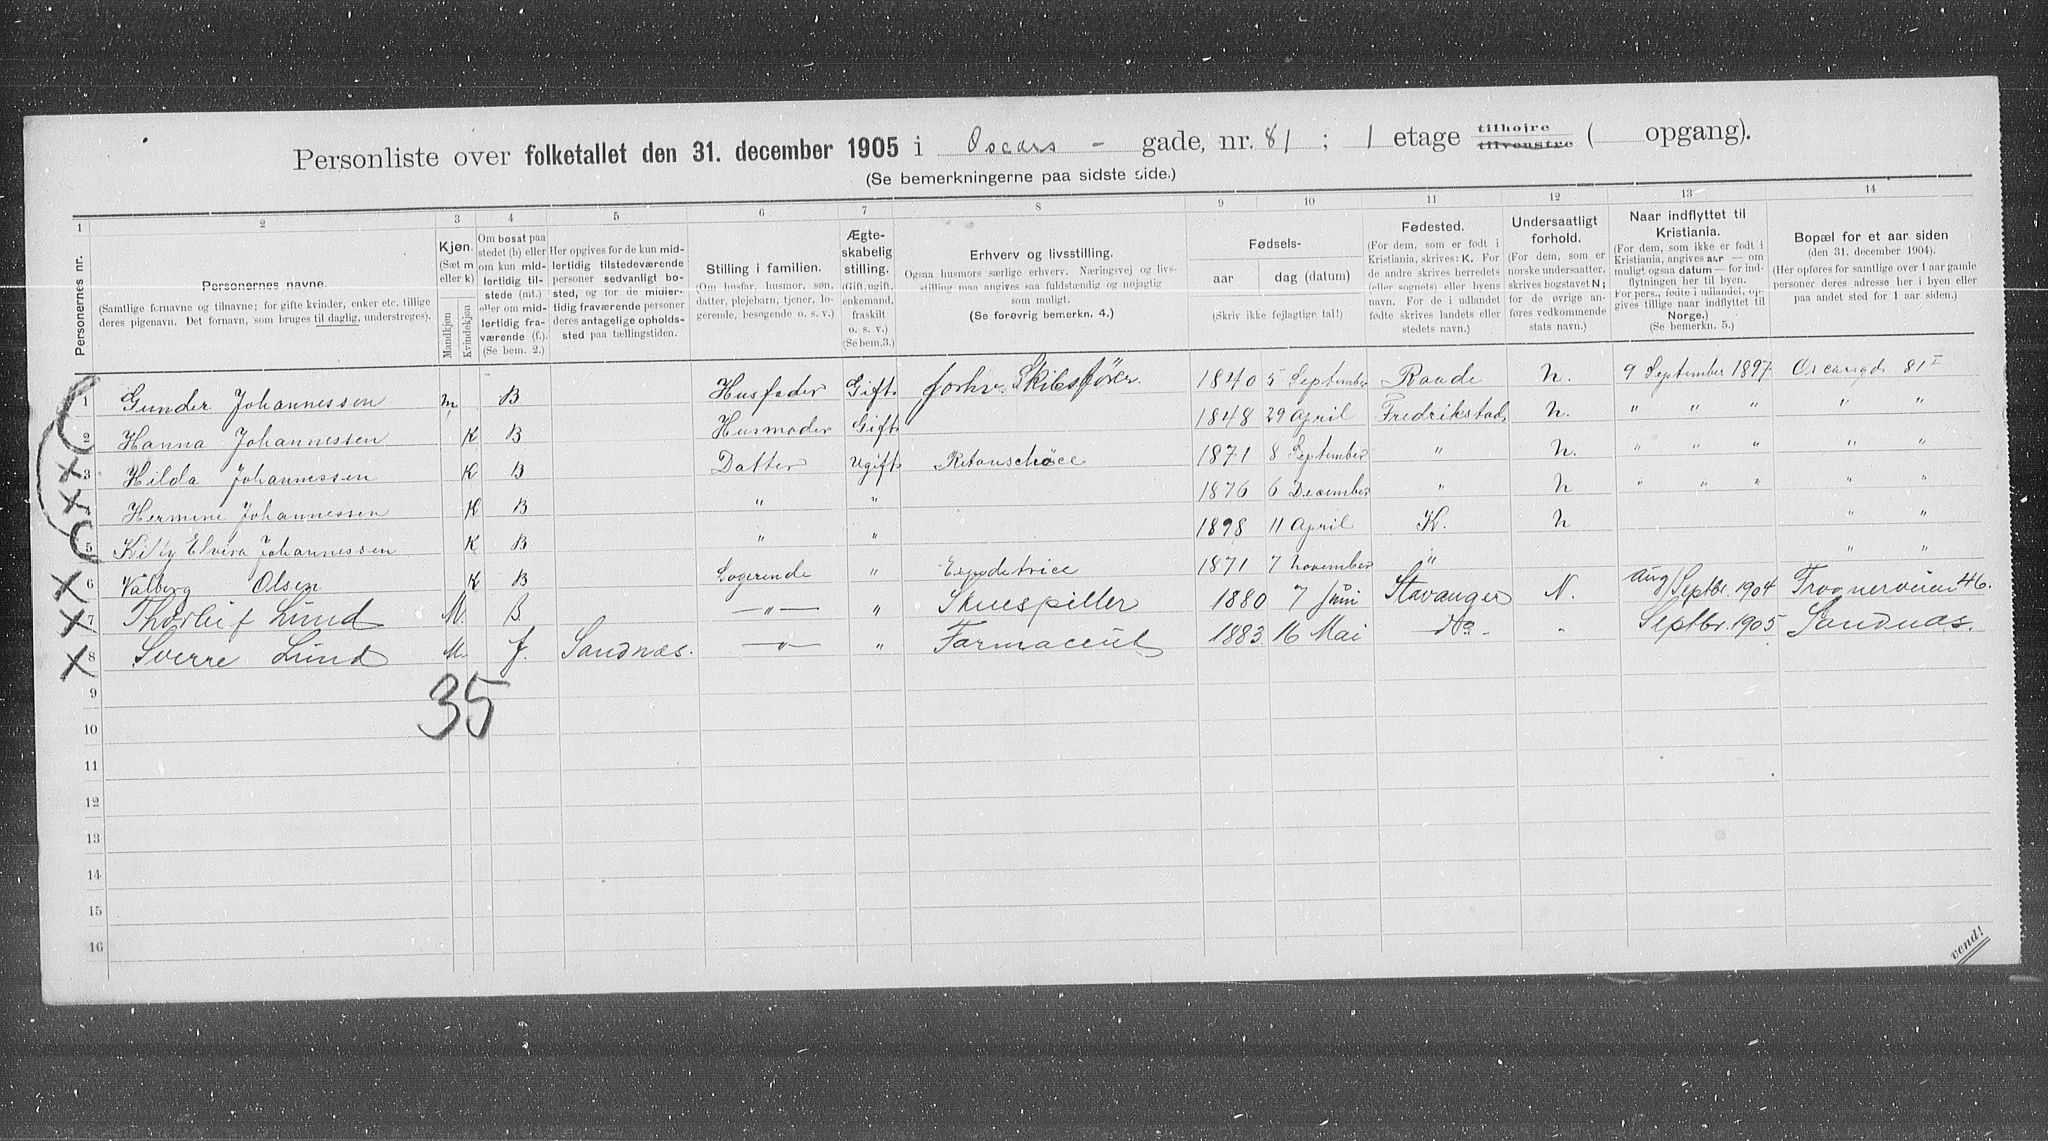 Personliste over folketallet den 31. december 1905 i Oscars - gade, nr. 81 ; 1 etage tilhøjre tilvenstre ( opgang).
(Se bemerkningerne paa sidste side.)
1 2 3 4 5 6 7 8 9 10 11 12 13 14
Personernes nr.
Personernes navne.
(Samtlige fornavne og tilnavne; for gifte kvinder, enker etc. tillige
deres pigenavn. Det fornavn, som bruges til daglig, understreges).
Kjøn.
(Sæt m
eller k)
Mandkjøn
Kvindekjøn
Om bosat paa
stedet (b) eller
om kun midlertidig
tilstede (mt.)
eller om midlertidig
fraværende (f.).
(Se bem. 2.)
Her opgives for de kun midlertidig
tilstedeværende
personer sedvanligt bosted,
og for de midlertidig
fraværende personer
deres antagelige opholdssted
paa tællingstiden.
Stilling i familien.
(Om husfar, husmor, søn,
datter, plejebarn, tjener, logerende,
besøgende o. s. v.)
Ægteskabelig
stilling.
(Gift, ugift,
enkemand,
fraskilt
o. s. v.)
(Se bem.3.)
Erhverv og livsstilling.
Ogsaa husmors særlige erhverv. Næringsvej og livsstilling
maa angives saa fuldstændig og nøjagtig
som muligt.
(Se forøvrig bemerkn. 4.)
Fødsels-
aar dag (datum)
(Skriv ikke fejlagtige tal!)
Fødested.
(For dem, som er født i
Kristiania, skrives: K. For
de andre skrives herredets
(eller sognets) eller byens
navn. For de i udlandet
fødte skrives landets eller
stedets navn.)
Undersaatligt
forhold.
(For dem, som er
norske undersaatter,
skrives bogstavet N;
for de øvrige anføres
vedkommende
stats navn.)
Naar indflyttet til
Kristiania.
(For dem, som ikke er født i
Kristiania, angives aar — om
muligt ogsaa datum — for indflytningen
her til byen.
For pers., fødte i udlandet, opgives
tillige naar indflyttet til
Norge.)
(Se bemerkn. 5.)
Bopæl for et aar siden
(den 31. december 1904).
(Her opføres for samtlige over 1 aar gamle
personer deres adresse her i byen eller
paa andet sted for 1 aar siden.)
1 Gunder Johannessen m B Husfader Gift forhv. Skibsfører. 1840 5 September Raade N. 9 September 1897 Oscarsgd. 81 I
2 Hanna Johannessen K B Husmoder Gift 1848 29 April Fredrikstad N. " " " " "
3 Hilda Johannessen K B Datter Ugift 1871 8 September " N. " " " " "
4 Hermine Johannessen K B " " 1876 6 December " N " " " " "
5 Kitty Elvira Johannessen K B " " 1898 11 April K. N " "
6 Valborg Olsen K B Logerende " Expeditrice 1871 7 November " " "
7 Thorleif Lund M. B. —"— " Skuespiller 1880 7 Juni Stavanger N. Aug/Septbr. 1904 Frognerveien 46.
8 Sverre Lund M. f. Sandnæs. —"— " Farmaceut 1883. 16 Mai - Do - " Septbr. 1905 Sandnæs.
35
9
10
11
12
13
14
15
16
vend!